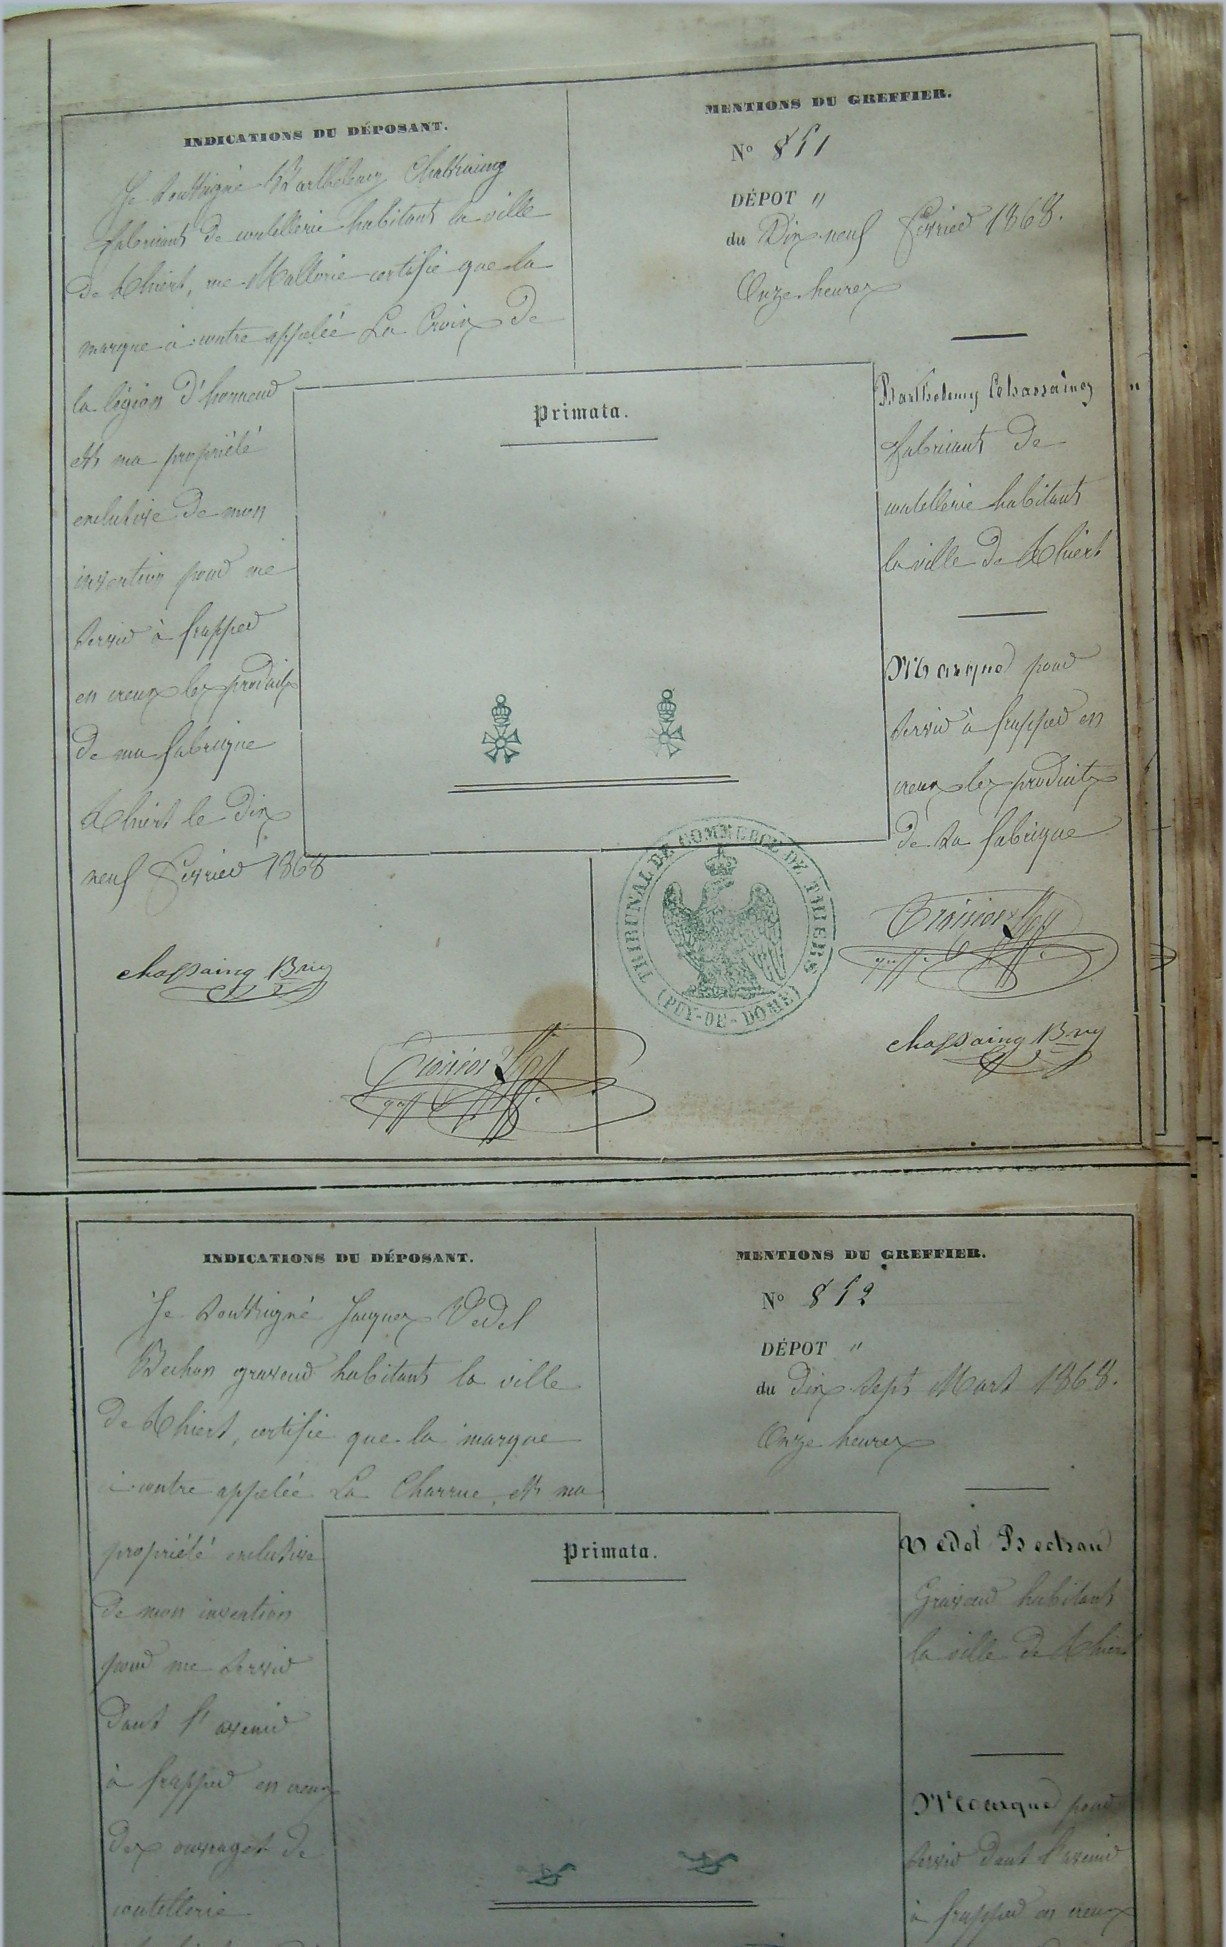 INDICATIONS DU DÉPOSANT.
Je soussigné Barthelemy Chassaing
fabricant de coutellerie habitant la ville
de Thiers, certifie que la
marque ci contre appelée La Croix de
la légion d'honneur
est ma propriété
exclusive de mon
invention pour me
servir à frapper
en creux les produits
de ma fabrique
Thiers le dix
neuf février 1868
chassaing Bruy
MENTIONS DU GREFFIER.
N° 851
DÉPOT "
du Dix neuf février 1868.
Onze heures
Primata.
Barthelemy Chassaing
fabricant de
coutellerie habitant
la ville de Thiers
Marque pour
servir à frapper en
creux les produits
de sa fabrique
chassaing Bruy
TRIBUNAL DE COMMERCE DE THIERS
(PUY-DE-DÔME)
INDICATIONS DU DÉPOSANT.
Je soussigné Jacques Vedel
Bechon graveur habitant la ville
de Thiers, certifie que la marque
ci contre appelée La Charrue, est ma
propriété exclusive
de mon invention
pour me servir
dans l'avenir
à frapper en creux
des ouvrages de
coutellerie
MENTIONS DU GREFFIER.
N° 852
DÉPOT "
du dix sept Mars 1868.
Onze heures
Primata.
Vedel Bechon
Graveur habitant
la ville de Thiers
Marque pour
servir dans l'avenir
à frapper en creux